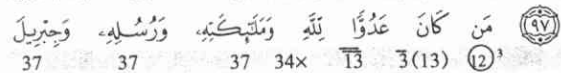 ﴿٩٧﴾ مَن كَانَ عَدُوًّا لِّلَّهِ وَمَلَٰٓئِكَتِهِۦ وَرُسُلِهِۦ وَجِبْرِيلَ
37 37 37 34× 13 3(13) 12 3